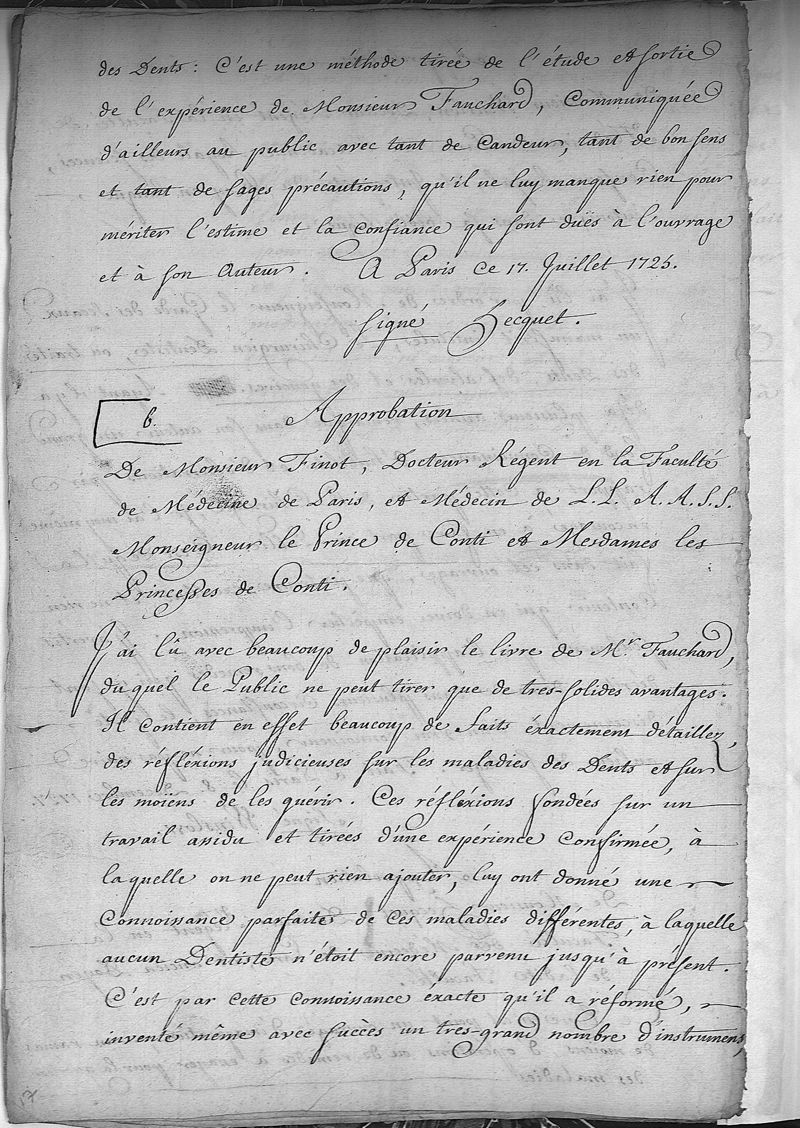 des Dents : C'est une méthode tirée de l'étude et sortie
de l'expérience de Monsieur Fauchard, communiquée
d'ailleurs au public avec tant de candeur, tant de bon sens
et tant de sages précautions, qu'il ne luy manque rien pour
mériter l'estime et la confiance qui sont duës à l'ouvrage
et à son Auteur. A Paris ce 17. Juillet 1725.
signé Hecquet.
b.
Approbation
De Monsieur Finot, Docteur Régent en la Faculté
de Médecine de Paris, et Médecin de L.L. A.A.S.S.
Monseigneur le Prince de Conti et Mesdames les
Princesses de Conti.
J'ai lû avec beaucoup de plaisir le livre de Mr. Fauchard,
duquel le Public ne peut tirer que de tres-solides avantages.
Il contient en effet beaucoup de faits éxactement détaillez,
des réfléxions judicieuses sur les maladies des Dents et sur
les moïens de les guérir. Ces réfléxions fondées sur un
travail assidu et tirées d'une expérience confirmée, à
laquelle on ne peut rien ajouter, luy ont donné une
connoissance parfaite de ces maladies différentes, à laquelle
aucun Dentiste n'étoit encore parvenu jusqu'à présent.
C'est par cette connoissance éxacte qu'il a réformé,
inventé même avec succès un tres-grand nombre d'instrumens,